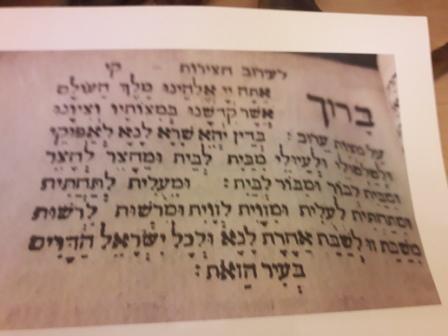 לערוב חצירות קי
בָּרוּךְ
אַתָּה יְיָ אֱלֹהֵינוּ מֶלֶךְ הָעוֹלָם
אֲשֶׁר קִדְּשָׁנוּ בְּמִצְוֹתָיו וְצִוָּנוּ
עַל מִצְוַת עֵרוּב: בְּדֵין יְהֵא שָׁרָא לָנָא לְאַפּוּקֵי
וּלְעַיּוּלֵי מִבַּיִת לְבַיִת וּמֵחָצֵר לְחָצֵר
לְבַיִת: וּמֵעֲלִית לְתַחְתִּית
וּמִתַּחְתִּית לַעֲלִית וּמִזָּוִית לְזָוִית וּמֵרְשׁוּת לִרְשׁוּת
מִשַּׁבָּת זוּ לְשַׁבָּת אַחֶרֶת לָנָא וּלְכָל יִשְׂרָאֵל הַדָּרִים
בְּעִיר הַזֹּאת: